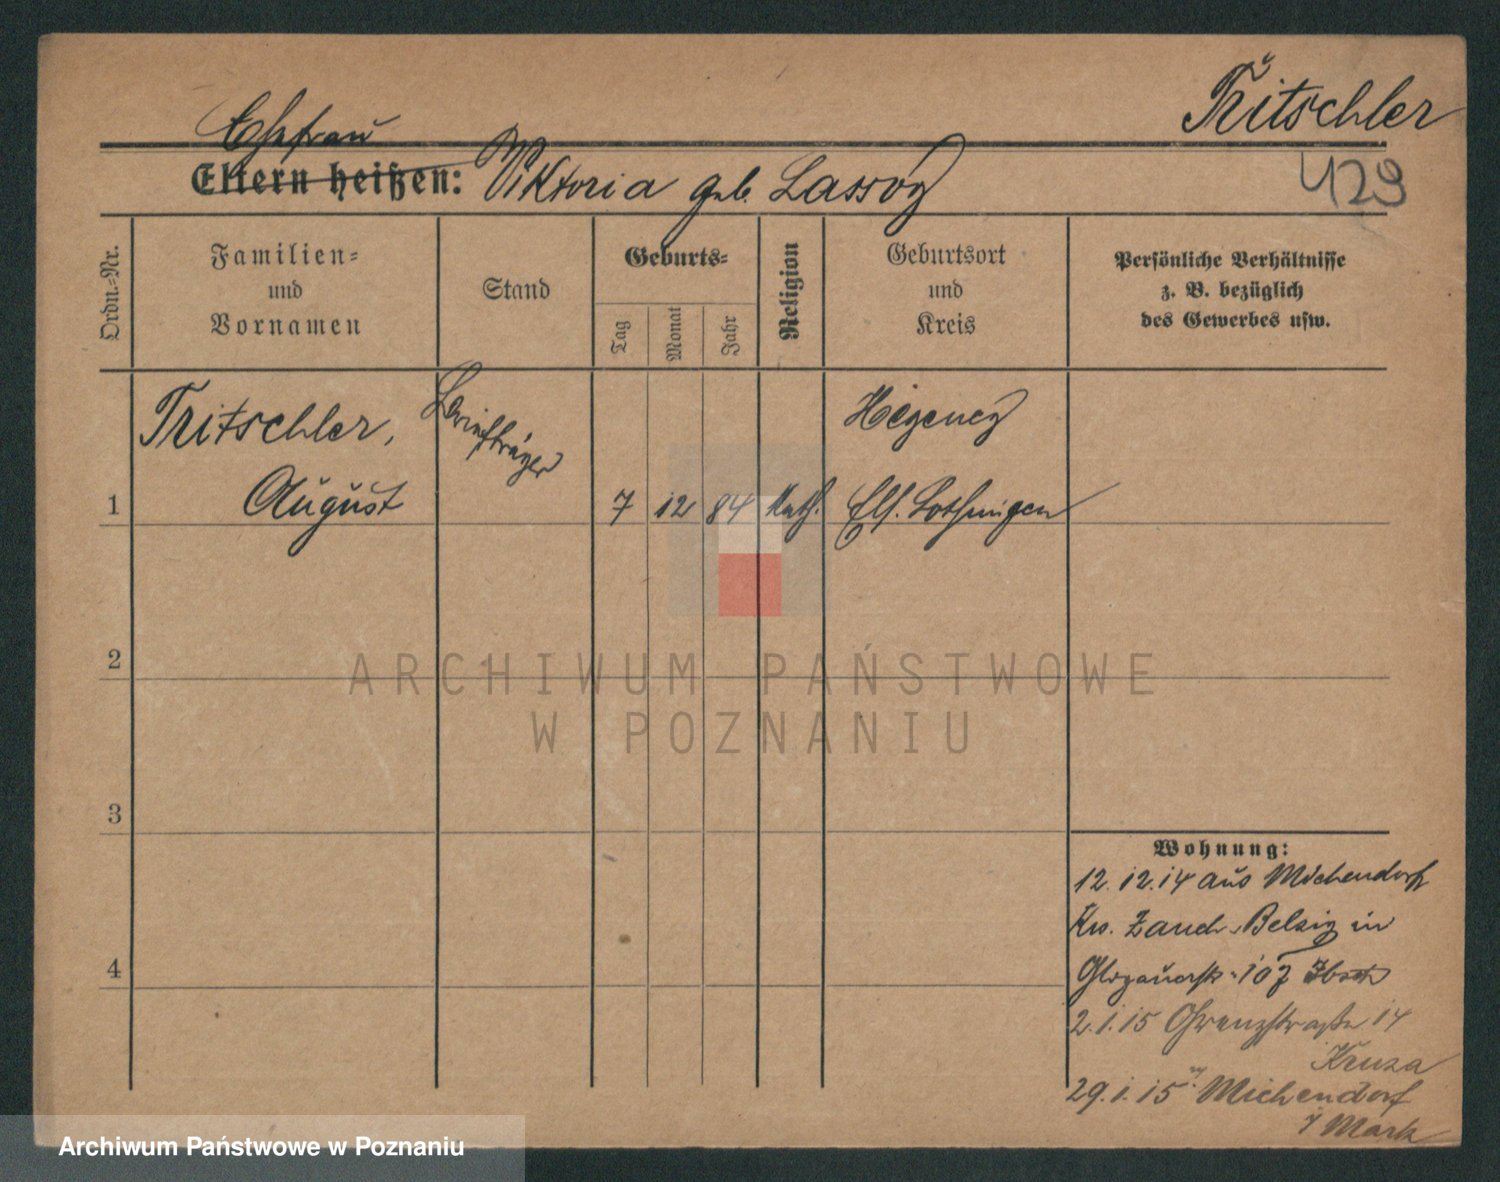 Tritschler
423
Ehefrau
Eltern heißen: Viktoria geb. Lassog
Ordn.-Nr.
Familien-
und
Vornamen
Stand
Geburts-
Tag
Monat
Jahr
Religion
Geburtsort
und
Kreis
Persönliche Verhältnisse
z. B. bezüglich
des Gewerbes usw.
Tritschler,
Briefträger
Hegeney
1
August
7 12 84 kath. Els. Lothringen
2
3
4
Wohnung:
12.12.14 aus Michendorf
Krs. Zauch-Belzig in
Glogauerstr. 107
2.1.15 Grenzstraße 14
29.1.15 n. Michendorf
Mark
ARCHIWUM PAŃSTWOWE
W POZNANIU
Archiwum Państwowe w Poznaniu